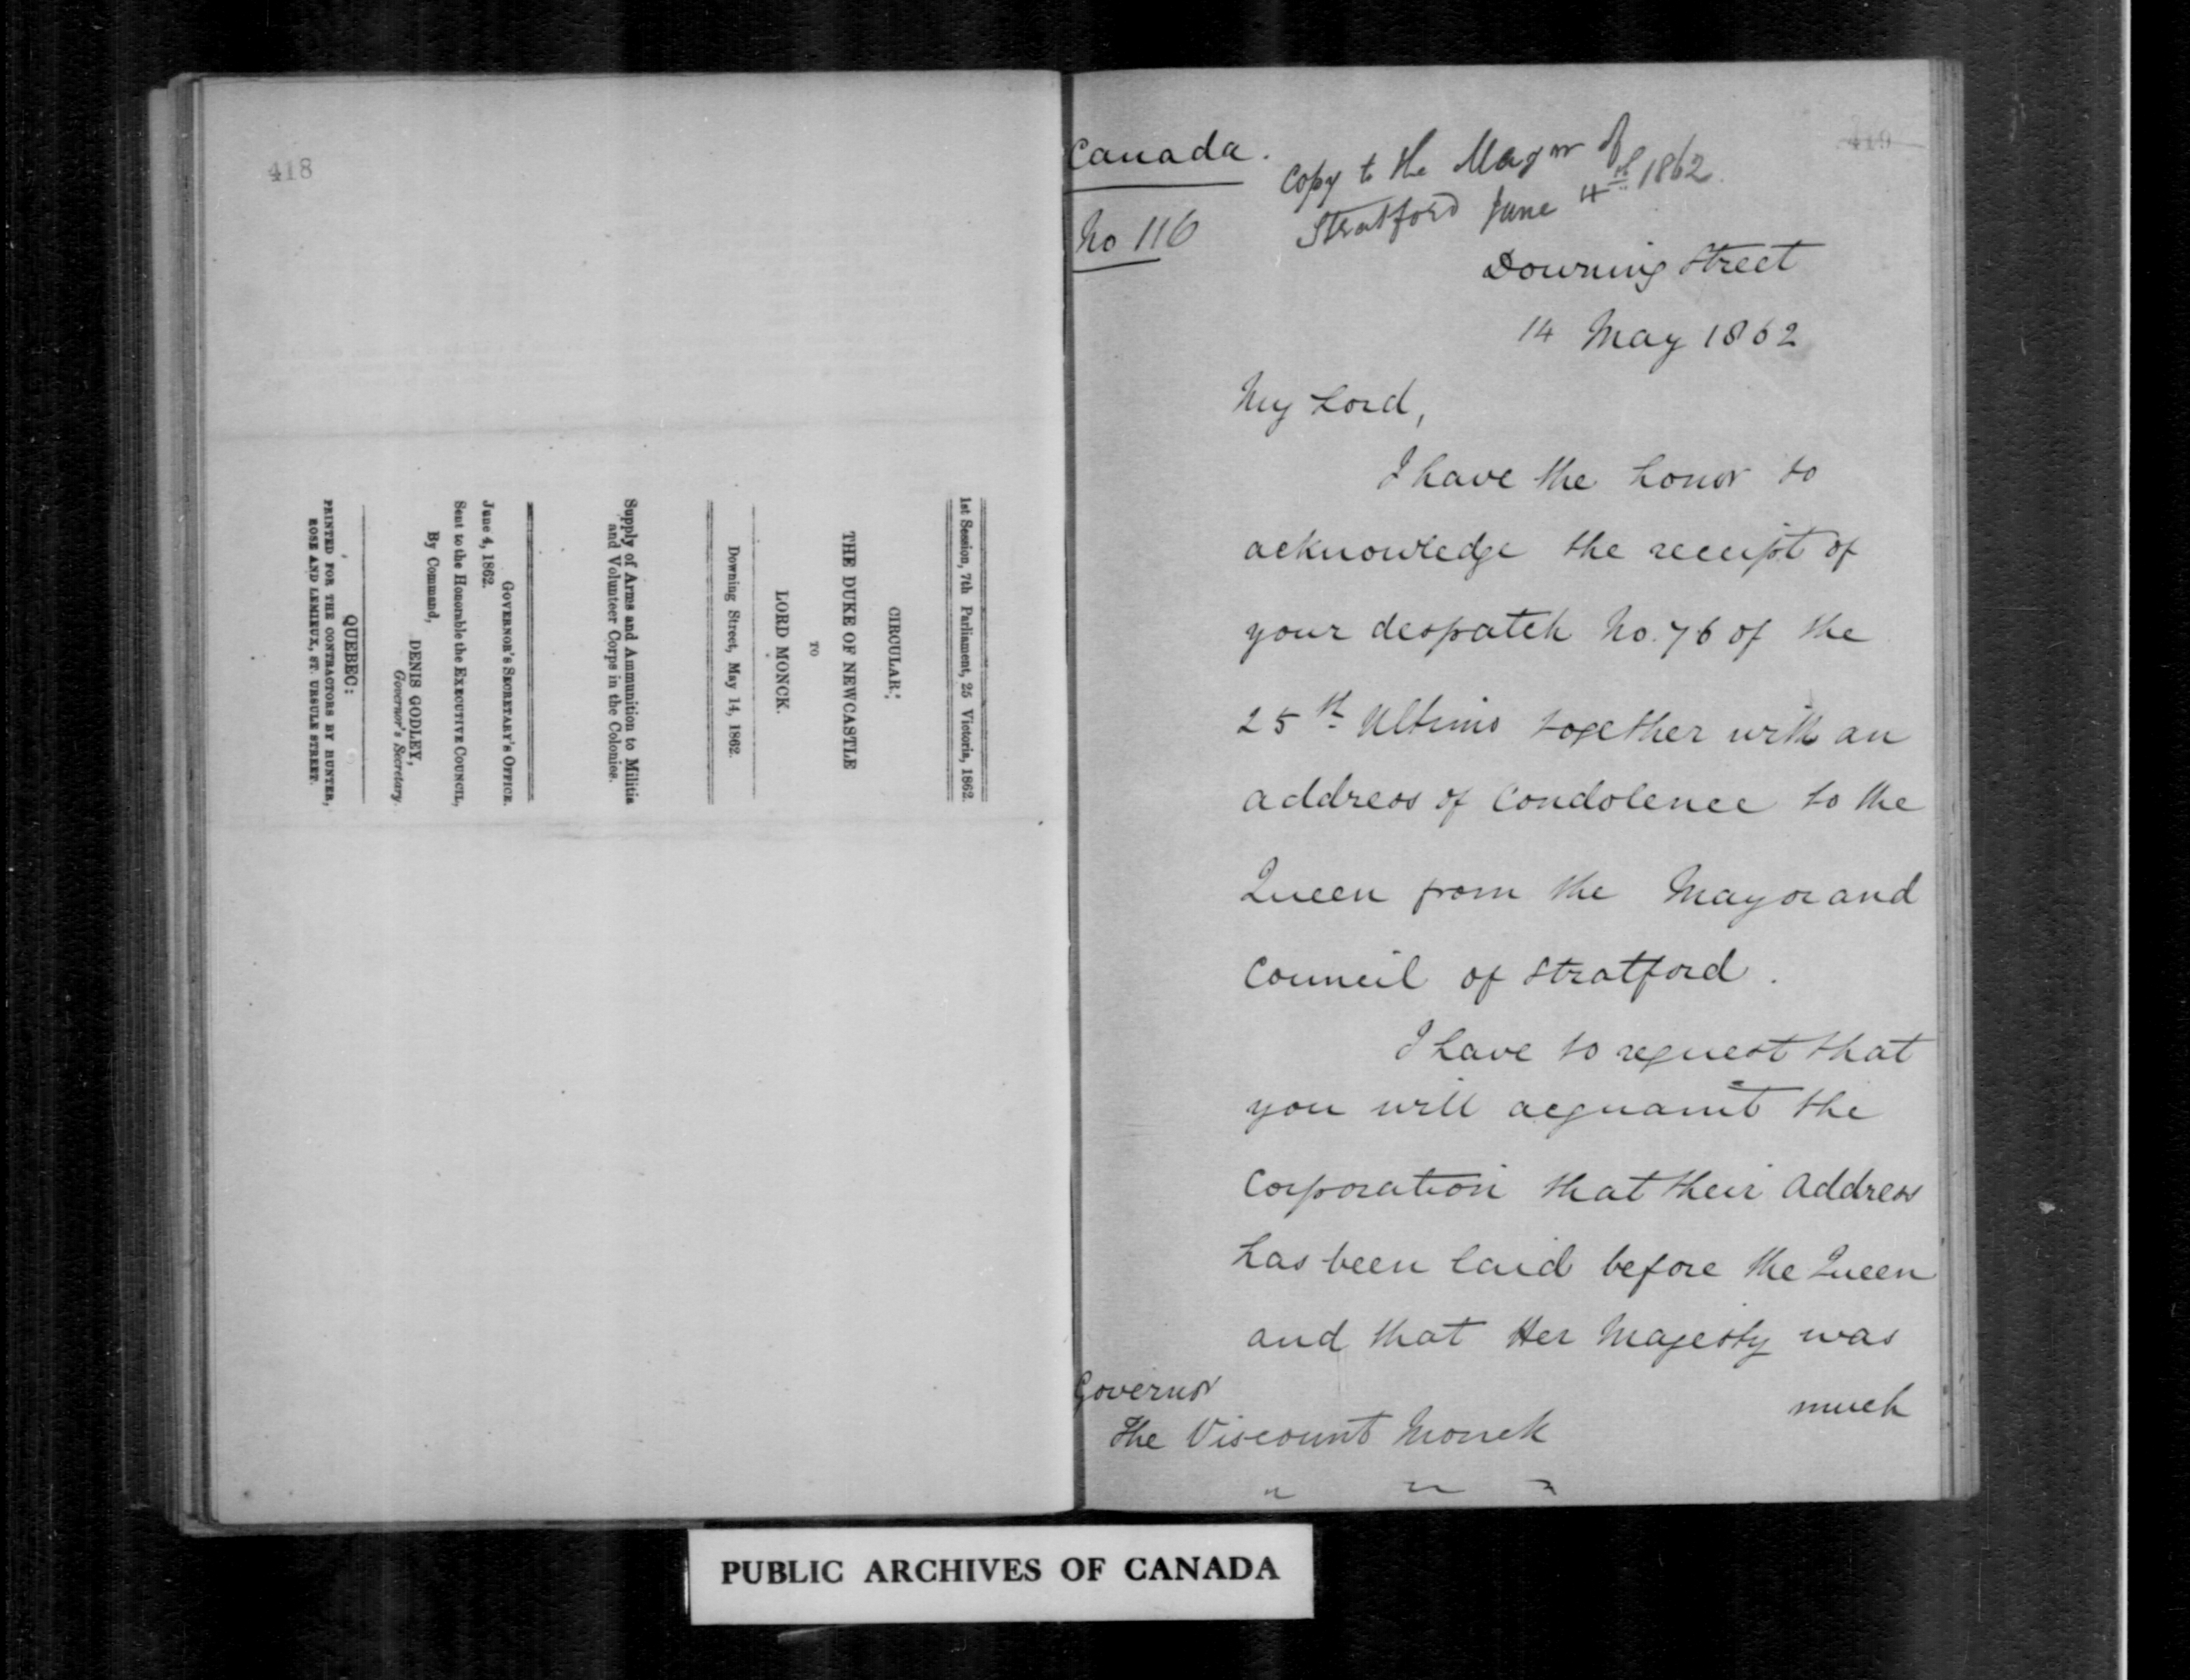 418
1st Session, 7th Parliament, 25 Victoria, 1862.
CIRCULAR.
THE DUKE OF NEWCASTLE
TO
LORD MONCK.
Downing Street, May 14, 1862.
Supply of Arms and Ammunition to Militia
and Volunteer Corps in the Colonies.
GOVERNOR'S SECRETARY'S OFFICE.
June 4, 1862.
Sent to the Honorable the EXECUTIVE COUNCIL,
By Command,
DENIS GODLEY,
Governor's Secretary.
QUEBEC:
PRINTED FOR THE CONTRACTORS BY HUNTER,
ROSE AND LEMIEUX, ST. URSULE STREET.
419
Canada.
No 116
Copy to the Mayor of
Stratford June 4th 1862.
Downing Street
14 May 1862
My Lord,
I have the honor to
acknowledge the receipt of
your despatch No. 76 of the
25th Ultimo together with an
address of Condolence to the
Queen from the Mayor and
Council of Stratford.
I have to request that
you will acquaint the
Corporation that their Address
has been laid before the Queen
and that Her Majesty was
much
Governor
The Viscount Monck
" " "
PUBLIC ARCHIVES OF CANADA